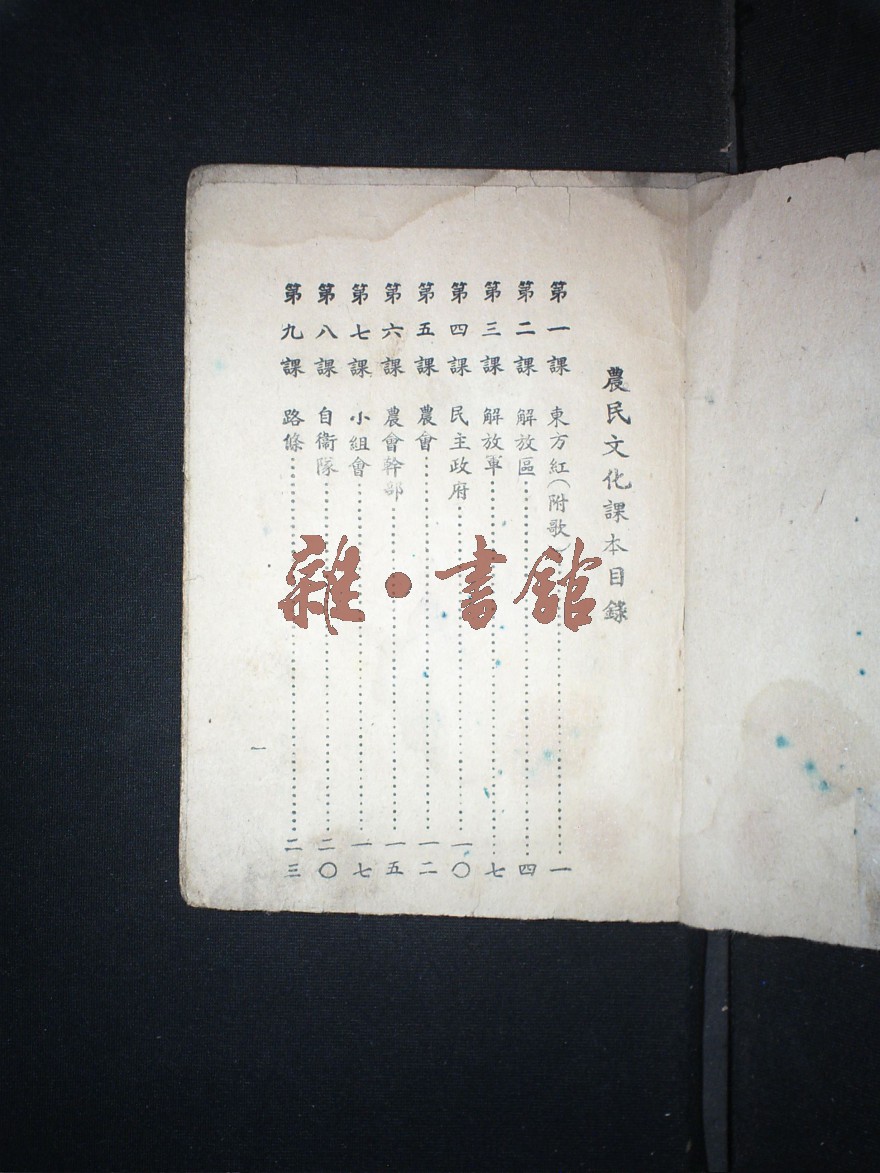 農民文化課本目錄
第一課 東方紅（附歌）……一
第二課 解放區……四
第三課 解放軍……七
第四課 民主政府……一〇
第五課 農會……一二
第六課 農會幹部……一五
第七課 小組會……一七
第八課 自衞隊……二〇
第九課 路條……二三
一
雜·書館